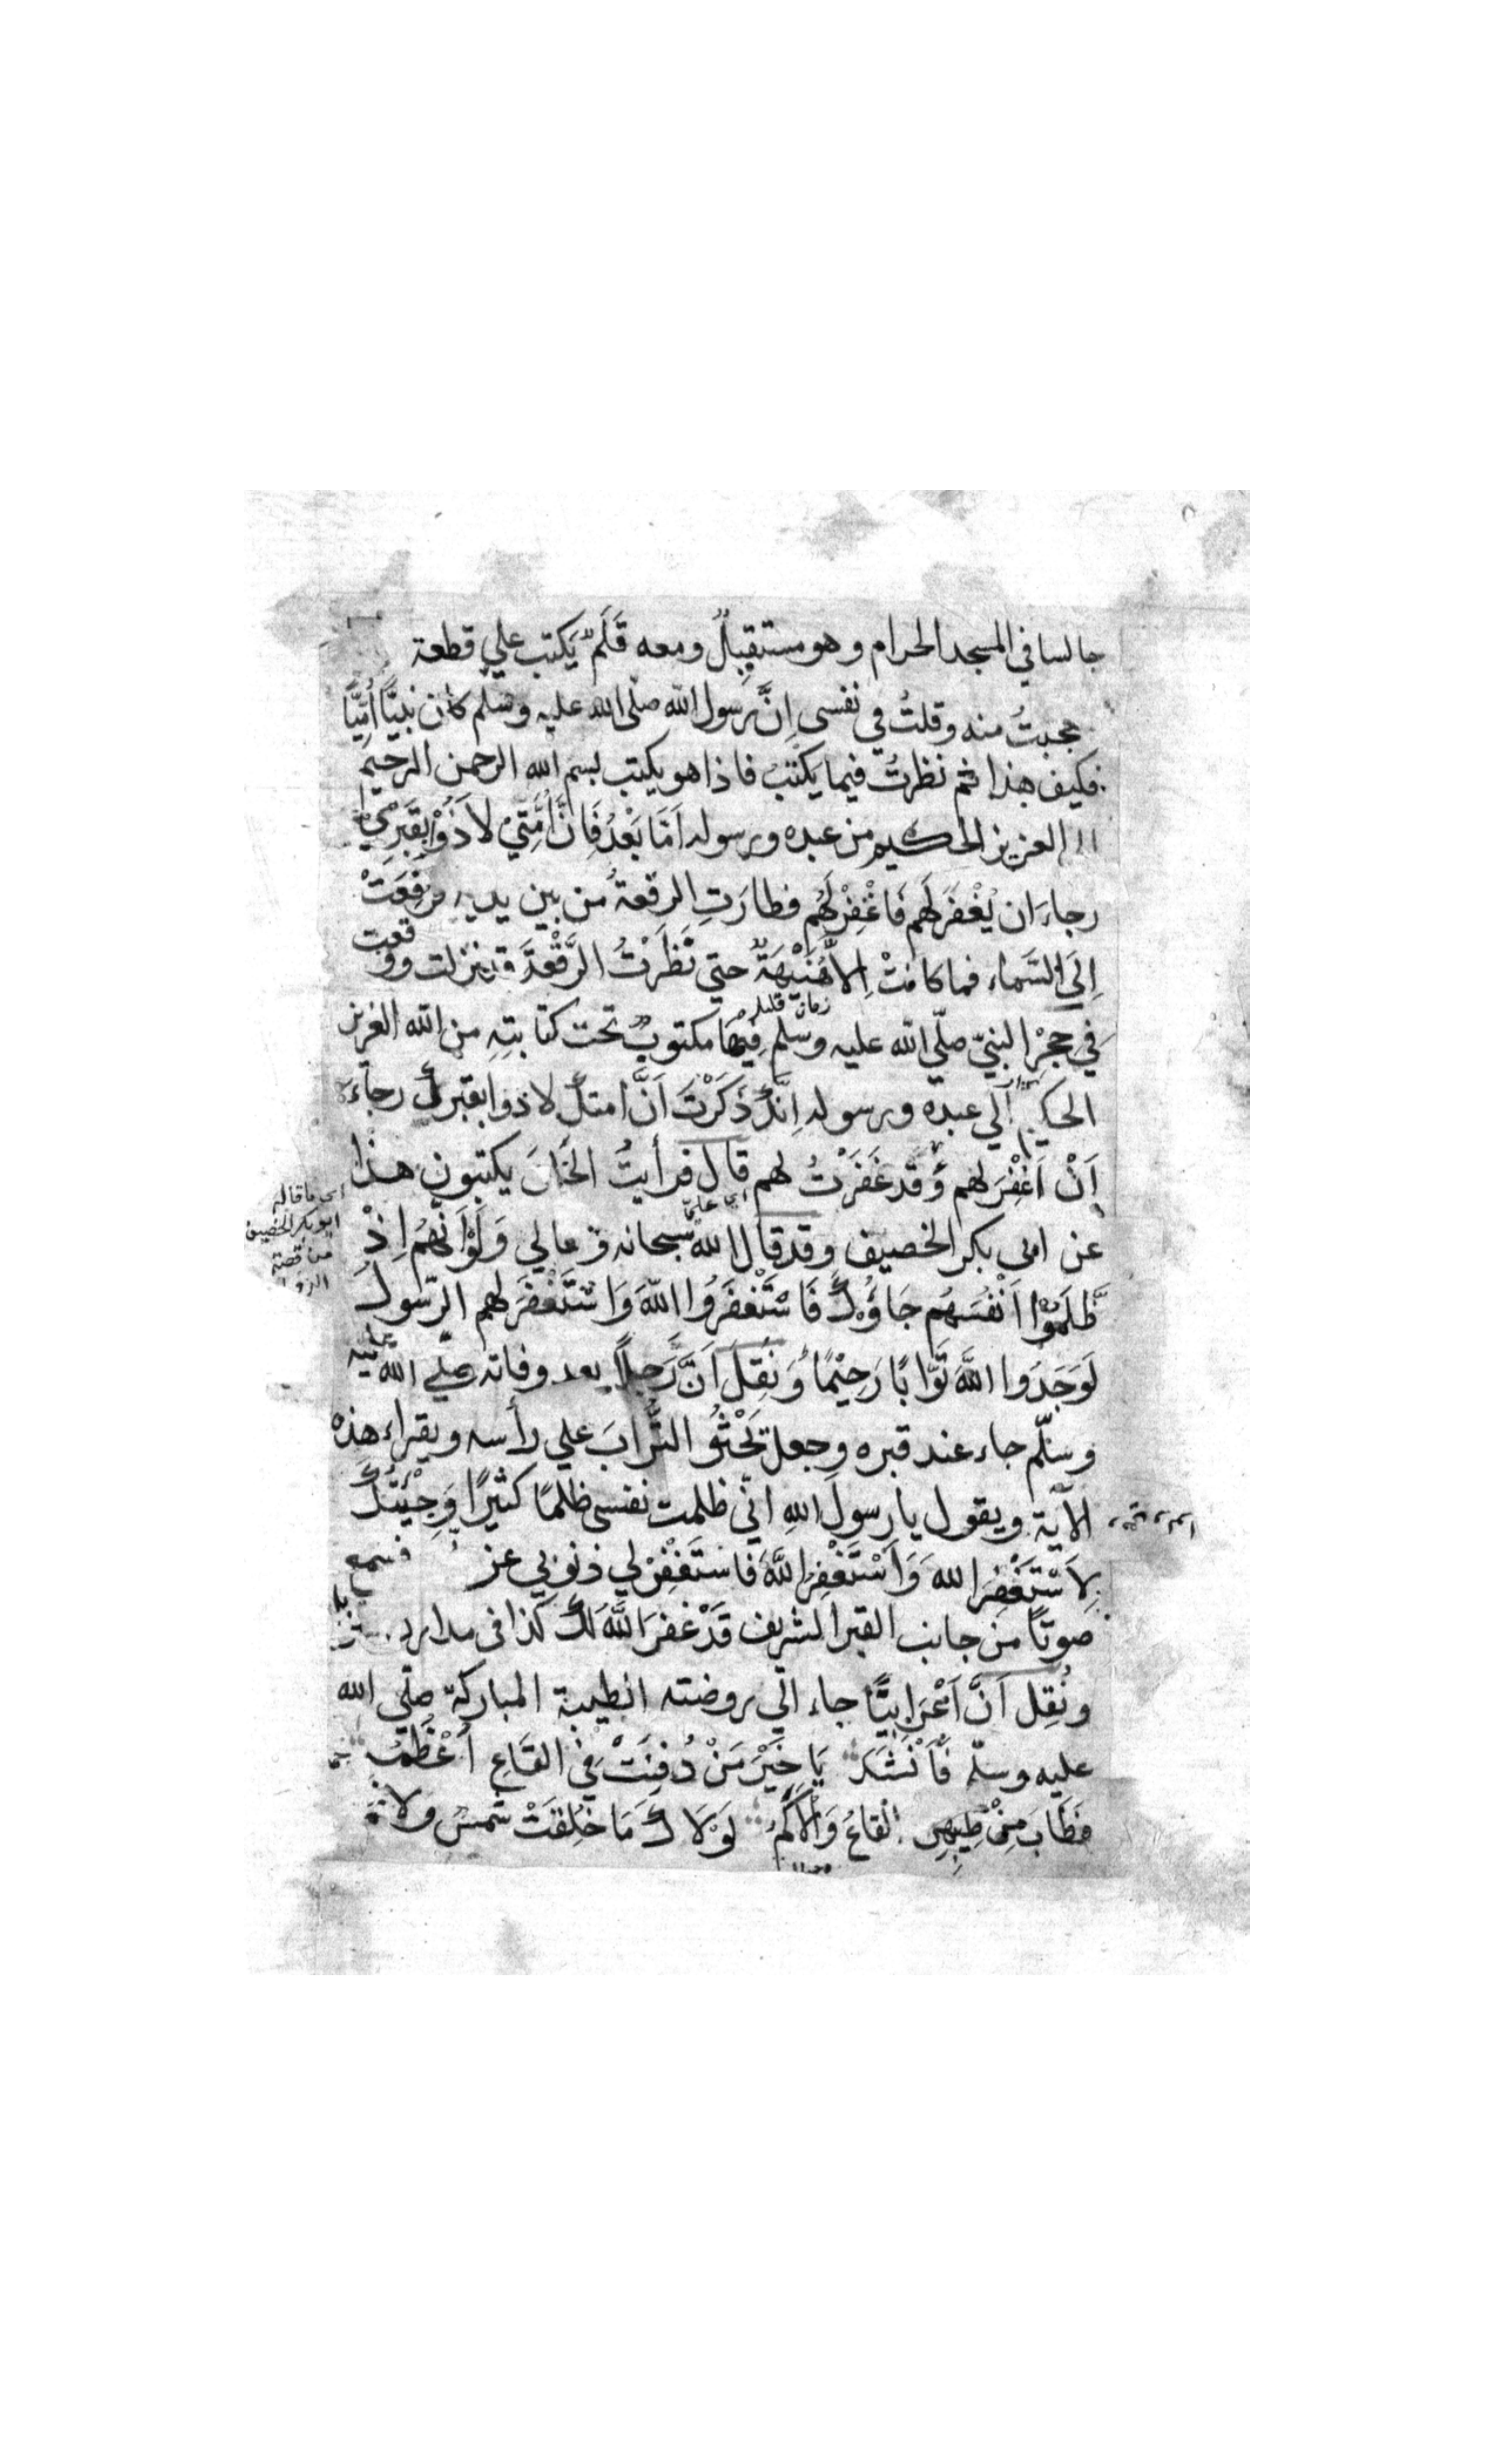 جالسا في المسجد الحرام وهو مستقبِلٌ ومعه قَلَمٌ يَكتب علي قطعة
عجبتُ منه وقلتُ في نفسي اِنَّ رسول الله صلّى الله عليه وسلّم كان نبيًّا أُمِّيًّا
فكيف هذا ثم نظرتُ فيما يكتبُ فاذا هو يكتب بسم الله الرحمن الرحيم
العزيز الحكيم من عبده ورسوله اَمَّا بَعْدُ فَاِنَّ اُمَّتِيْ لاَذُوْا بِقَبْرِيْ
رجاءَ ان يُغْفَرَ لَهم فَاغْفِرْ لَهُم فطارَتِ الرقعةُ من بين يديه فرُفِعَتْ
اِلَي السَّماء فما كانتْ اِلاَّ هُنَيْهَةٌ حتي نَظَرْتُ الرُّقْعَةَ قد نزلت ووقعت
زمان قليل
في حِجْرِ النبيّ صلّي الله عليه وسلم فِيْهَا مكتوبٌ تحت كتابتِهِ من الله العزيز
الحكيم الي عبده ورسوله اِنَّكَ ذَكَرْتَ اَنَّ امتكَ لاذوا بقبرك رجاءَ
اَنْ اَغْفِرَ لهم وَقد غَفَرْتُ لهم قال فرأيتُ الحَُ يكتبون هذا
عن ابي بكر الخصيف وقد قال اللهُ سبحانه وتعالي وَلَوْ اَنَّهُم اِذْ
اي ما قاله
ابو بكر الخصيف
من قصة
ظَّلَمُوْا اَنْفُسَهُم جَاؤُكَ فَاسْتَغْفَرُوا اللهَ وَاسْتَغْفَرَ لهم الرّسولُ
لَوَجَدُوا اللَّهَ تَوَّابًا رَحِيْمًا وَنُقِلَ اَنَّ رَجلاً بعد وفاته صلّي الله عليه
وسلّم جاء عند قبره وجعل يَحْثُوْ التُّرابَ علي رأسه ويقراء هذه
الآية ويقول يا رسولَ اللهِ انّي ظلمت نفسي ظلمًا كثيرًا وَجِئْتُكَ
لِاَسْتَغْفِرَ اللهَ وَاَسْتَغْفِرُ اللَّهَ فَاسْتَغْفِرْ لي ذنوبي عز فسمع
صوتًا من جانب القبر الشريف قَدْ غَفَرَ اللَّهُ لَكَ كذا في مدارك
ونُقِل اَنَّ اَعْرَابِيًّا جاء الي روضته الطيبة المباركة صلّي الله
عليه وسلّم فَاَنْشَدَ يَا خَيْرَ مَنْ دُفِنَتْ فِي القَاعِ اَعْظُمُهُ
فَطَابَ مِنْ طِيْبِهِنَّ القاعُ وَالْاَكَمُ لَوْلاَكَ مَا خُلِقَتْ شَمسٌ وَلاَ